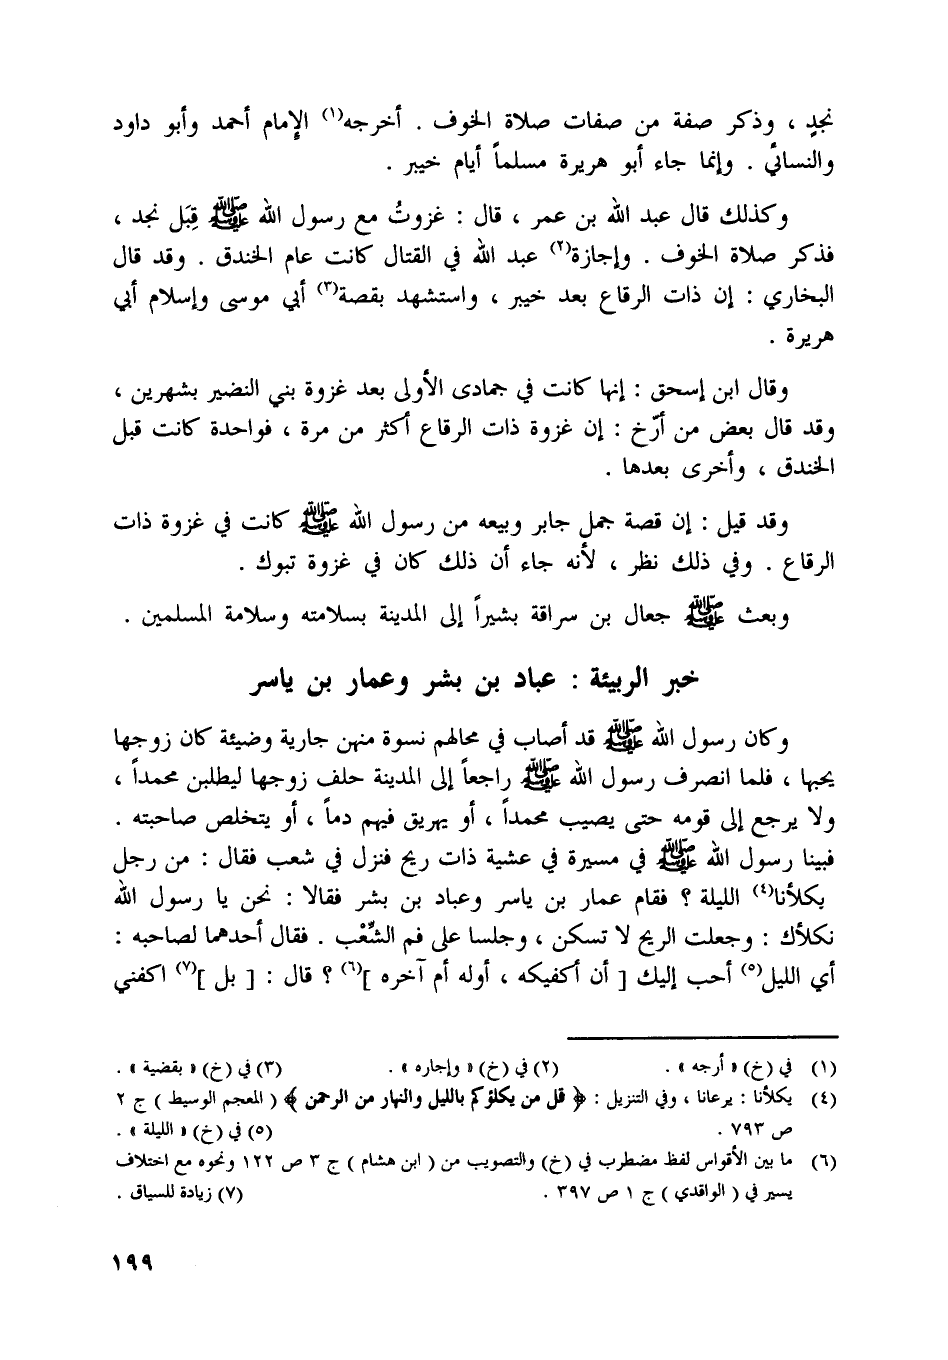 نجدٍ ، وذكر صفة من صفات صلاة الخوف . أخرجه(١) الإمام أحمد وأبو داود
والنسائي . وإنما جاء أبو هريرة مسلماً أيام خيبر .
وكذلك قال عبد الله بن عمر ، قال : غزوتُ مع رسول الله ﷺ قِبَل نجد ،
فذكر صلاة الخوف . وإجازة(٢) عبد الله في القتال كانت عام الخندق . وقد قال
البخاري : إن ذات الرقاع بعد خيبر ، واستشهد بقصة(٣) أبي موسى وإسلام أبي
هريرة .
وقال ابن إسحق : إنها كانت في جمادى الأولى بعد غزوة بني النضير بشهرين ،
وقد قال بعض من أرّخ : إن غزوة ذات الرقاع أكثر من مرة ، فواحدة كانت قبل
الخندق ، وأخرى بعدها .
وقد قيل : إن قصة جمل جابر وبيعه من رسول الله ﷺ كانت في غزوة ذات
الرقاع . وفي ذلك نظر ، لأنه جاء أن ذلك كان في غزوة تبوك .
وبعث ﷺ جعال بن سراقة بشيراً إلى المدينة بسلامته وسلامة المسلمين .
خبر الربيئة : عباد بن بشر وعمار بن ياسر
وكان رسول الله ﷺ قد أصاب في محالهم نسوة منهن جارية وضيئة كان زوجها
يحبها ، فلما انصرف رسول الله ﷺ راجعاً إلى المدينة حلف زوجها ليطلبن محمداً ،
ولا يرجع إلى قومه حتى يصيب محمداً ، أو يهريق فيهم دماً ، أو يتخلص صاحبته .
فبينا رسول الله ﷺ في مسيرة في عشية ذات ريح فنزل في شعب فقال : من رجل
يكلأنا(٤) الليلة ؟ فقام عمار بن ياسر وعباد بن بشر فقالا : نحن يا رسول الله
نكلأك : وجعلت الريح لا تسكن ، وجلسا على فم الشِّعْب . فقال أحدهما لصاحبه :
أي الليل(٥) أحب إليك [ أن أكفيكه ، أوله أم آخره ](٦) ؟ قال : [ بل ](٧) اكفني
(١) في (خ) « أرجه » . (٢) في (خ) « وإجاره » . (٣) في (خ) « بقضية » .
(٤) يكلأنا : يرعانا ، وفي التنزيل : ﴿ قل من يكلؤكم بالليل والنهار من الرحمن ﴾ ( المعجم الوسيط ) ج ٢
ص ٧٩٣ . (٥) في (خ) « الليلة » .
(٦) ما بين الأقواس لفظ مضطرب في (خ) والتصويب من ( ابن هشام ) ج ٣ ص ١٢٢ ونحوه مع اختلاف
يسير في ( الواقدي ) ج ١ ص ٣٩٧ . (٧) زيادة للسياق .
١٩٩